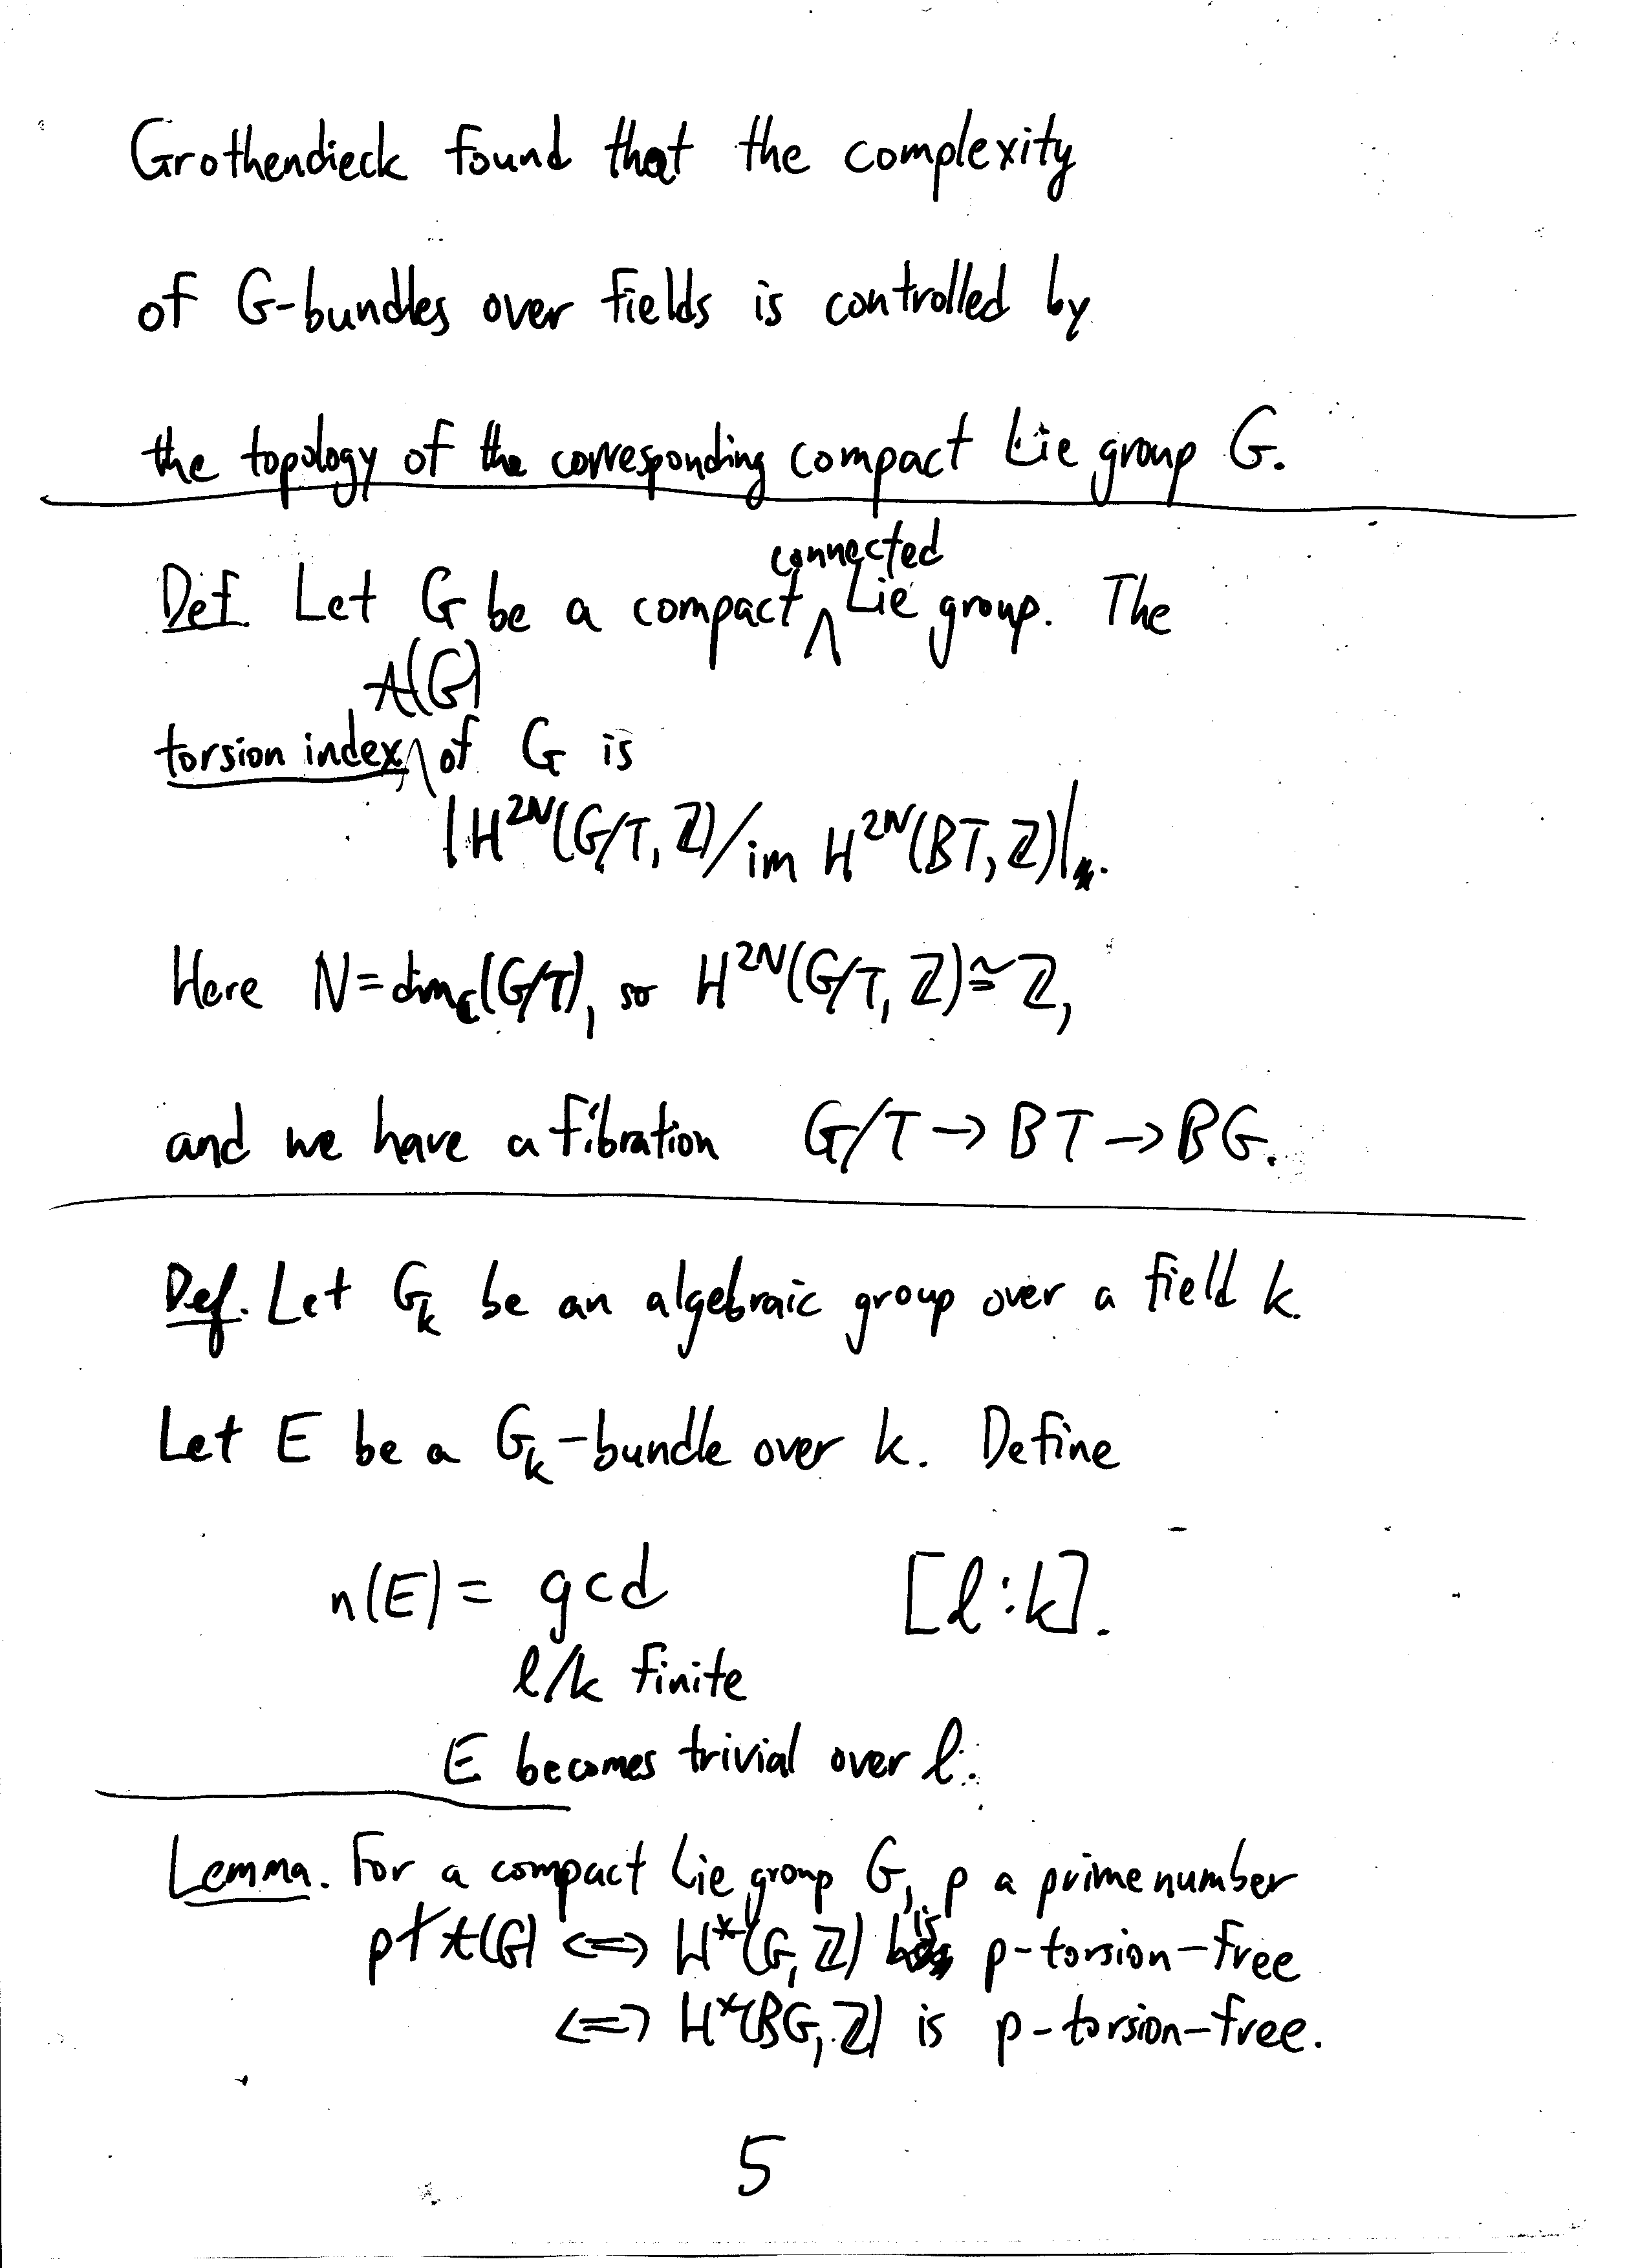 Grothendieck found that the complexity
of G-bundles over fields is controlled by
the topology of the corresponding compact Lie group G.
Def. Let G be a compact connected Lie group. The
torsion index t(G) of G is
|H^{2N}(G/T, ℤ)/im H^{2N}(BT, ℤ)|.
Here N = dim_ℂ(G/T), so H^{2N}(G/T, ℤ) ≅ ℤ,
and we have a fibration G/T → BT → BG.
Def. Let G_k be an algebraic group over a field k.
Let E be a G_k-bundle over k. Define
n(E) = gcd [l:k].
l/k finite
E becomes trivial over l.
Lemma. For a compact Lie group G, p a prime number
p∤t(G) ⟺ H*(G, ℤ) is p-torsion-free
⟺ H*(BG, ℤ) is p-torsion-free.
5